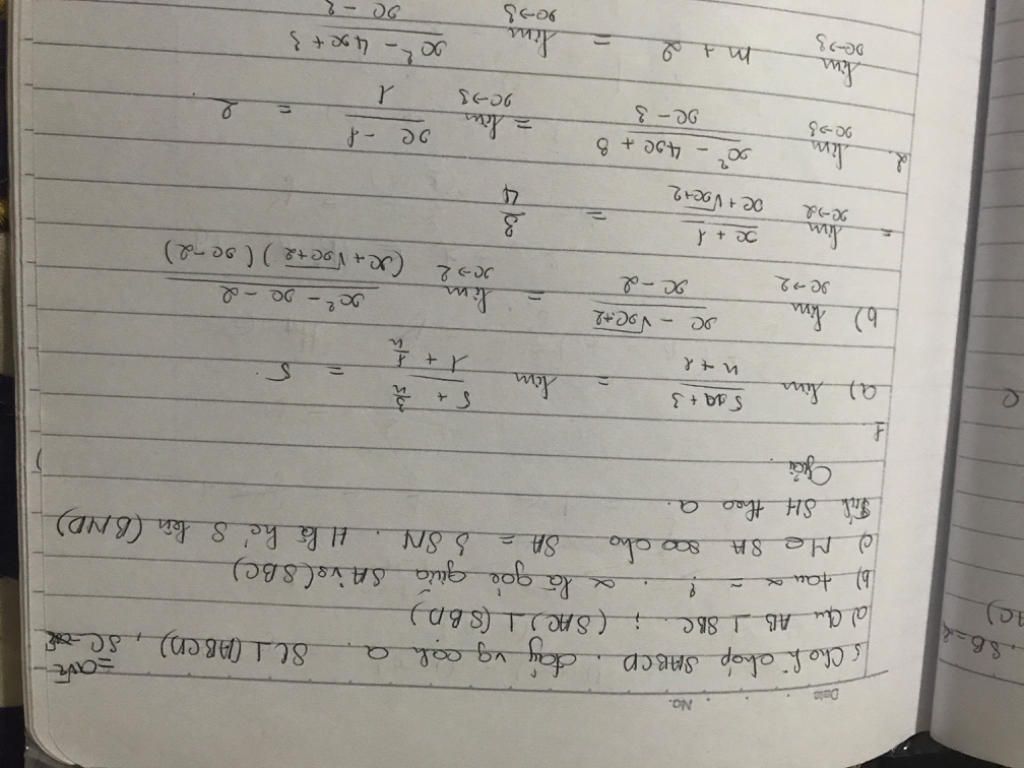 Date No.
5 Cho h chóp SABCD. đáy vg cạh a. SC ⊥ (ABCD), SC = a√
a) Cm AB ⊥ SBC ; (SAC) ⊥ (SBD)
b) tan α = ? . α là góc giữa SA và (SBC)
c) M ∈ SA sao cho SA = 3 SM . H là h/c S lên (BMD)
Tính SH theo a.
Giải
1
a) lim (5n + 3)/(n + 1) = lim (5 + 3/n)/(1 + 1/n) = 5.
b) lim x→2 (x - √x+2)/(x - 2) = lim x→2 (x² - x - 2)/((x + √x+2)(x-2))
= lim x→2 (x + 1)/(x + √x+2) = 3/4
2. lim x→3 (x² - 4x + 3)/(x - 3) = lim x→3 (x - 1)/1 = 2.
lim x→3 m + 2 = lim x→3 (x² - 4x + 3)/(x - 3)